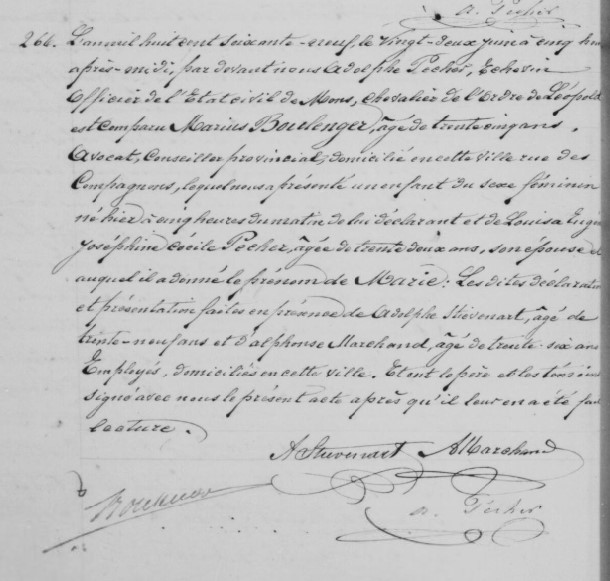 A. Pécher
264. L'an mil huit cent soixante-neuf, le vingt-deux juin à cinq heu
après-midi, par devant nous Adolphe Pécher, Echevin
Officier de l'Etat civil de Mons, chevalier de l'Ordre de Léopold
est comparu Marius Boulenger, âgé de trente cinq ans,
Avocat, Conseiller provincial, domicilié en cette ville rue des
Compagnons, lequel nous a présenté un enfant du sexe féminin
né hier à cinq heures du matin de lui déclarant et de Louisa Eugé
Joséphine Cécile Pécher, âgée de trente deux ans, son épouse et
auquel il a donné le prénom de Marie: Les dites déclaration
et présentation faites en présence de Adolphe Stiévenart, âgé de
trente-neuf ans et d'Alphonse Marchand, âgé de trente-six ans
Employés, domiciliés en cette ville. Et ont le père et les témoins
signé avec nous le présent acte après qu'il leur en a été fait
lecture.
A Stievenart AMarchand
A. Pécher